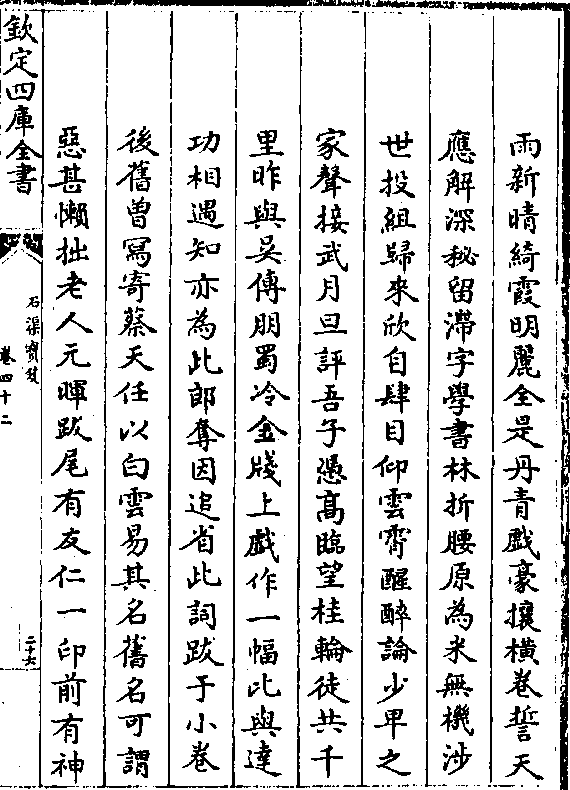 雨新晴綺霞明麗全是丹青戲豪攘橫卷誓天
應解深秘留滯字學書林折腰原為米無機涉
世投組歸來欣自肆目仰雲霄醒醉論少卑之
家聲接武月旦評吾子憑高臨望桂輪徒共千
里昨與吳傅朋蜀冷金牋上戲作一幅比與達
功相遇知亦為此郎奪因追省此詞跋于小卷
後舊曾寫寄蔡天任以白雲易其名舊名可謂
惡甚懶拙老人元暉跋尾有友仁一印前有神
欽定四庫全書
石渠寶笈
卷四十二
二十六